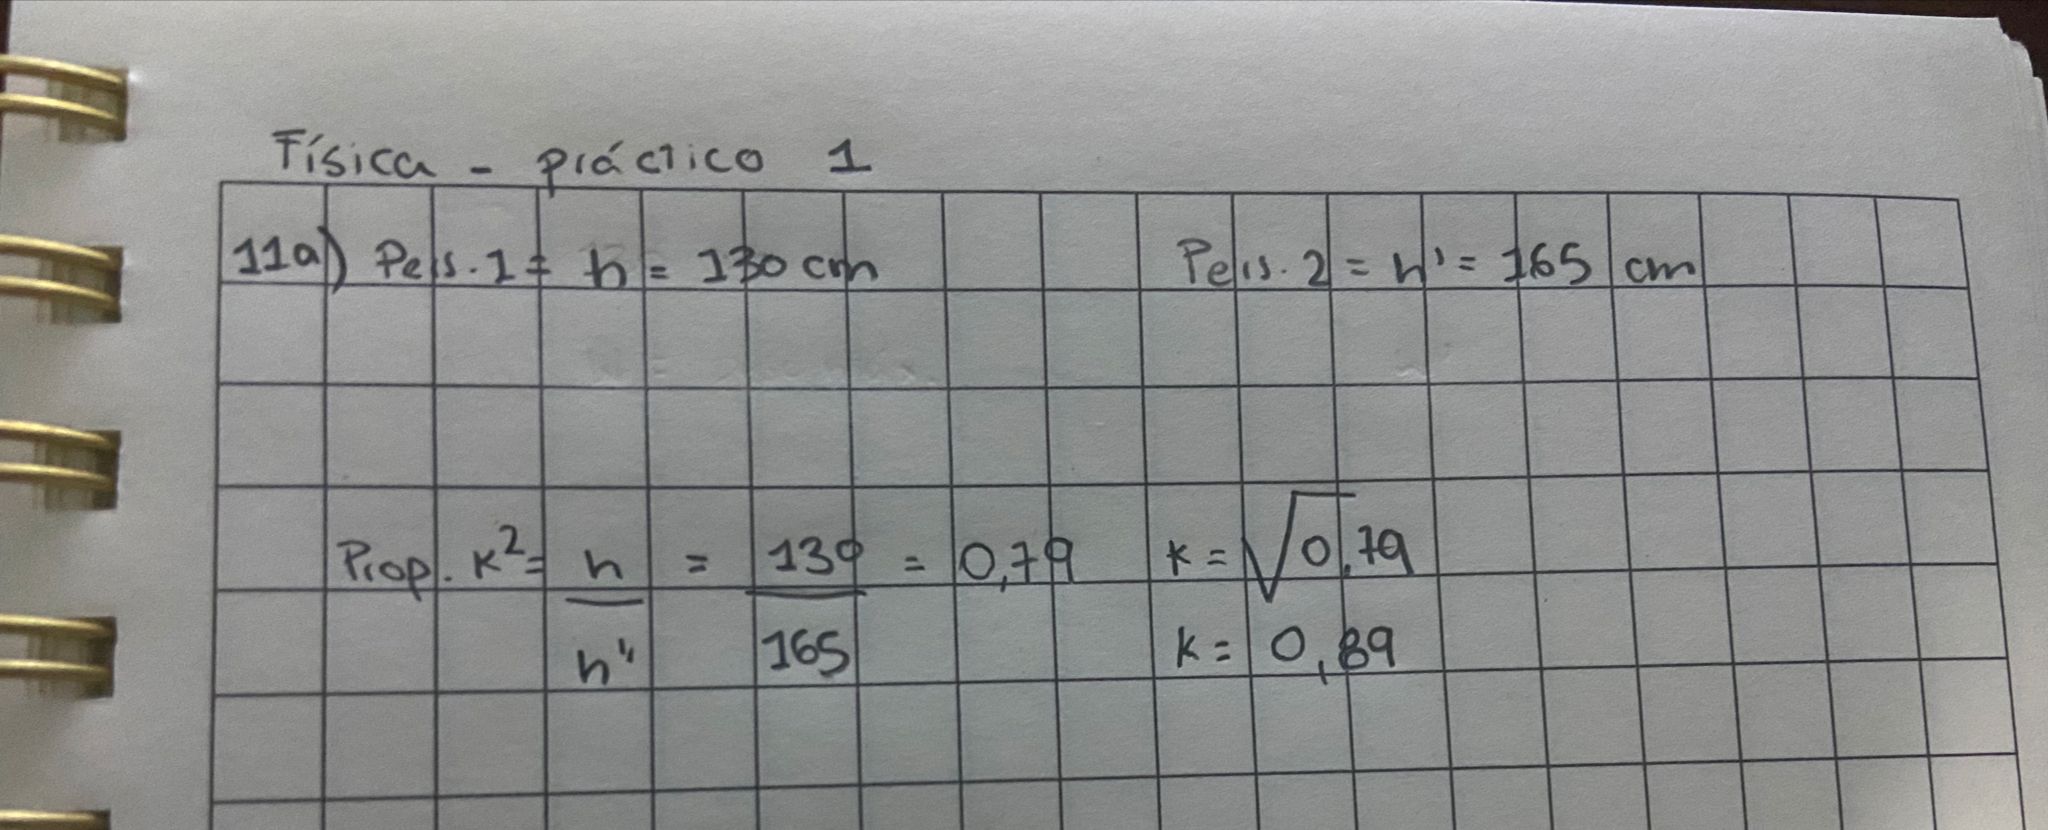 Física - práctico 1
11a) Pers. 1 = h = 130 cm Pers. 2 = h' = 165 cm
Prop. K² = h = 130 = 0,79 K = √0,79
h'' 165 K = 0,89